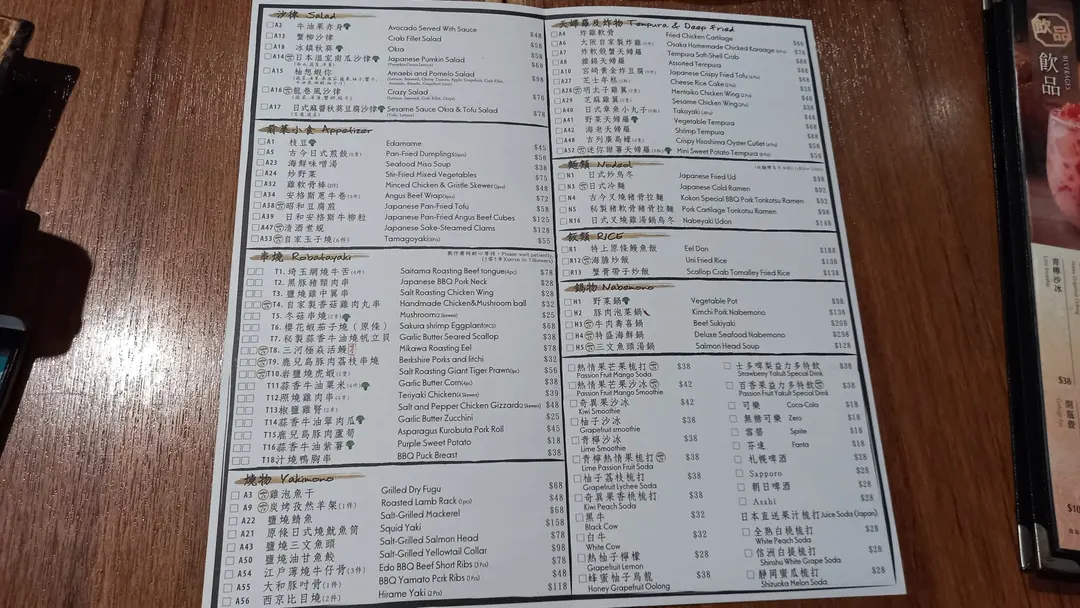 沙律 Salad
A2 牛油果赤身 Avocado Served With Sauce $48
A13 蟹柳沙律 Crab Fillet Salad $58
A18 冰鎮秋葵 Okra $58
A14 日本溫室南瓜沙律 Japanese Pumkin Salad $69
A15 柚想蝦你 Amaebi and Pomelo Salad $98
A16 龍卷風沙律 Crazy Salad $76
A17 日式麻醬秋葵豆腐沙律 Sesame Sauce Okra & Tofu Salad $78
前菜小食 Appetizer
A1 枝豆 Edamame $45
A5 古今日式煎餃 Pan-Fried Dumplings $56
A23 海鮮味噌湯 Seafood Miso Soup $38
A24 炒野菜 Stir-Fried Mixed Vegetables $75
A32 雞軟骨棒 Minced Chicken & Gristle Skewer $48
A34 安格斯蔥牛卷 Angus Beef Wrap $72
A38 昭和豆腐煎 Japanese Pan-Fried Tofu $58
A39 日和安格斯牛柳粒 Japanese Pan-Fried Angus Beef Cubes $125
A47 清酒煮蜆 Japanese Sake-Steamed Clams $128
A53 自家玉子燒(6件) Tamagoyaki $55
串燒 Robatayaki
製作需時耐心等候，Please wait patiently.
T1. 埼玉網燒牛舌 Saitama Roasting Beef tongue $78
T2. 黑豚豬頸肉串 Japanese BBQ Pork Neck $28
T3. 鹽燒雞中翼串 Salt Roasting Chicken Wing $28
T4. 自家製香菇雞肉丸串 Handmade Chicken&Mushroom ball $32
T5. 冬菇串燒 Mushroom $25
T6. 櫻花蝦茄子燒（原條） Sakura shrimp Eggplant $68
T7. 秘製蒜香牛油燒帆立貝 Garlic Butter Seared Scallop $38
T8. 三河極焱活鰻 Mikawa Roasting Eel $78
T9. 鹿兒島豚肉荔枝串燒 Berkshire Porks and litchi $32
T10. 岩鹽燒虎蝦 Salt Roasting Giant Tiger Prawn $56
T11 蒜香牛油粟米 Garlic Butter Corn $38
T12 照燒雞肉串 Teriyaki Chicken $39
T13 椒鹽雞腎 Salt and Pepper Chicken Gizzard $48
T14 蒜香牛油翠肉瓜 Garlic Butter Zucchini $25
T15 鹿兒島豚肉蘆筍 Asparagus Kurobuta Pork Roll $45
T16 蒜香牛油紫薯 Purple Sweet Potato $18
T18 汁燒鴨胸串 BBQ Puck Breast $38
燒物 Yakimono
A3 雞泡魚干 Grilled Dry Fugu $68
A9 炭烤孜然羊架(1件) Roasted Lamb Rack $48
A22 鹽燒鯖魚 Salt-Grilled Mackerel $68
A21 原條日式燒魷魚筒 Squid Yaki $158
A43 鹽燒三文魚頭 Salt-Grilled Salmon Head $78
A50 鹽燒油甘魚鮫 Salt-Grilled Yellowtail Collar $98
A54 江戶薄燒牛仔骨(3件) Edo BBQ Beef Short Ribs $78
A55 大和豚吋骨(1件) BBQ Yamato Pcrk Ribs $78
A56 西京比目燒(2件) Hirame Yaki $118
天婦羅及炸物 Tempura & Deep Fried
A4 炸雞軟骨 Fried Chicken Cartilage $66
A6 大阪自家製炸雞 Osaka Homemade Chicked Karaage $76
A7 炸軟殼蟹天婦羅 Tempura Soft-Shell Crab $88
A8 雜錦天婦羅 Assorted Tempura $88
A10 宮崎黃金炸豆腐 Japanese Crispy Fried Tofu $68
A27 芝士年糕 Cheese Rice Cake $38
A28 明太子雞翼 Mentaiko Chicken Wing $48
A29 芝麻雞翼 Sesame Chicken Wing $38
A40 日式章魚小丸子 Takoyaki $48
A41 野菜天婦羅 Vegetable Tempura $68
A42 海老天婦羅 Shrimp Tempura $88
A48 古列廣島蠔 Crispy Hiroshima Oyster Cutlet $88
A52 迷你甜薯天婦羅 Mini Sweet Potato Tempura $59
麵類 Nodeol
N1 日式炒烏冬 Japanese Fried Ud $98
N3 日式冷麵 Japanese Cold Ramen $92
N4 古今叉燒豬骨拉麵 Kokon Special BBQ Pork Tonkotsu Ramen $92
N5 秘製豬軟骨豬骨拉麵 Pork Cartilage Tonkotsu Ramen $98
N16 日式叉燒雞湯鍋烏冬 Nabeyaki Udon $148
飯類 RICE
R1 特上原條鰻魚飯 Eel Don $188
R12 海膽炒飯 Uni Fried Rice $138
R13 蟹膏帶子炒飯 Scallop Crab Tomalley Fried Rice $138
鍋物 Nabemono
H1 野菜鍋 Vegetable Pot $98
H2 豚肉泡菜鍋 Kimchi Pork Nabemono $138
H3 牛肉壽喜鍋 Beef Sukiyaki $268
H4 特盛海鮮鍋 Deluxe Seafood Nabemono $298
H5 三文魚頭湯鍋 Salmon Head Soup $128
熱情果芒果梳打 $38
Passion Fruit Mango Soda
熱情果芒果沙冰 $42
Passion Fruit Mango Smoothie
奇異果沙冰 $42
Kiwi Smoothie
柚子沙冰 $38
Grapefruit smoothie
青檸沙冰 $38
Lime Smoothie
青檸熱情果梳打 $38
Lime Passion Fruit Soda
柚子荔枝梳打 $38
Grapefruit Lychee Soda
奇異果香桃梳打 $38
Kiwi Peach Soda
黑牛 $32
Black Cow
白牛 $32
White Cow
熱柚子檸檬 $28
Grapefruit Lemon
蜂蜜柚子烏龍 $38
Honey Grapefruit Oolong
士多啤梨益力多特飲 $38
Strawberry Yakult Special Drink
百香果益力多特飲 $38
Passion Fruit Yakult Special Drink
可樂 Coca-Cola $18
無糖可樂 Zero $18
雪碧 Sprite $18
芬達 Fanta $18
札幌啤酒 $28
Sapporo
朝日啤酒 $28
Asahi
日本直送果汁梳打Juice Soda (Japan)
全熟白桃梳打 $28
White Peach Soda
信洲白提梳打 $28
Shinshu White Grape Soda
靜岡蜜瓜梳打 $28
Shizuoka Melon Soda
飲品
BEVERAGES
飲品
青檸沙冰
Lime Smoothie
$38
開瓶費